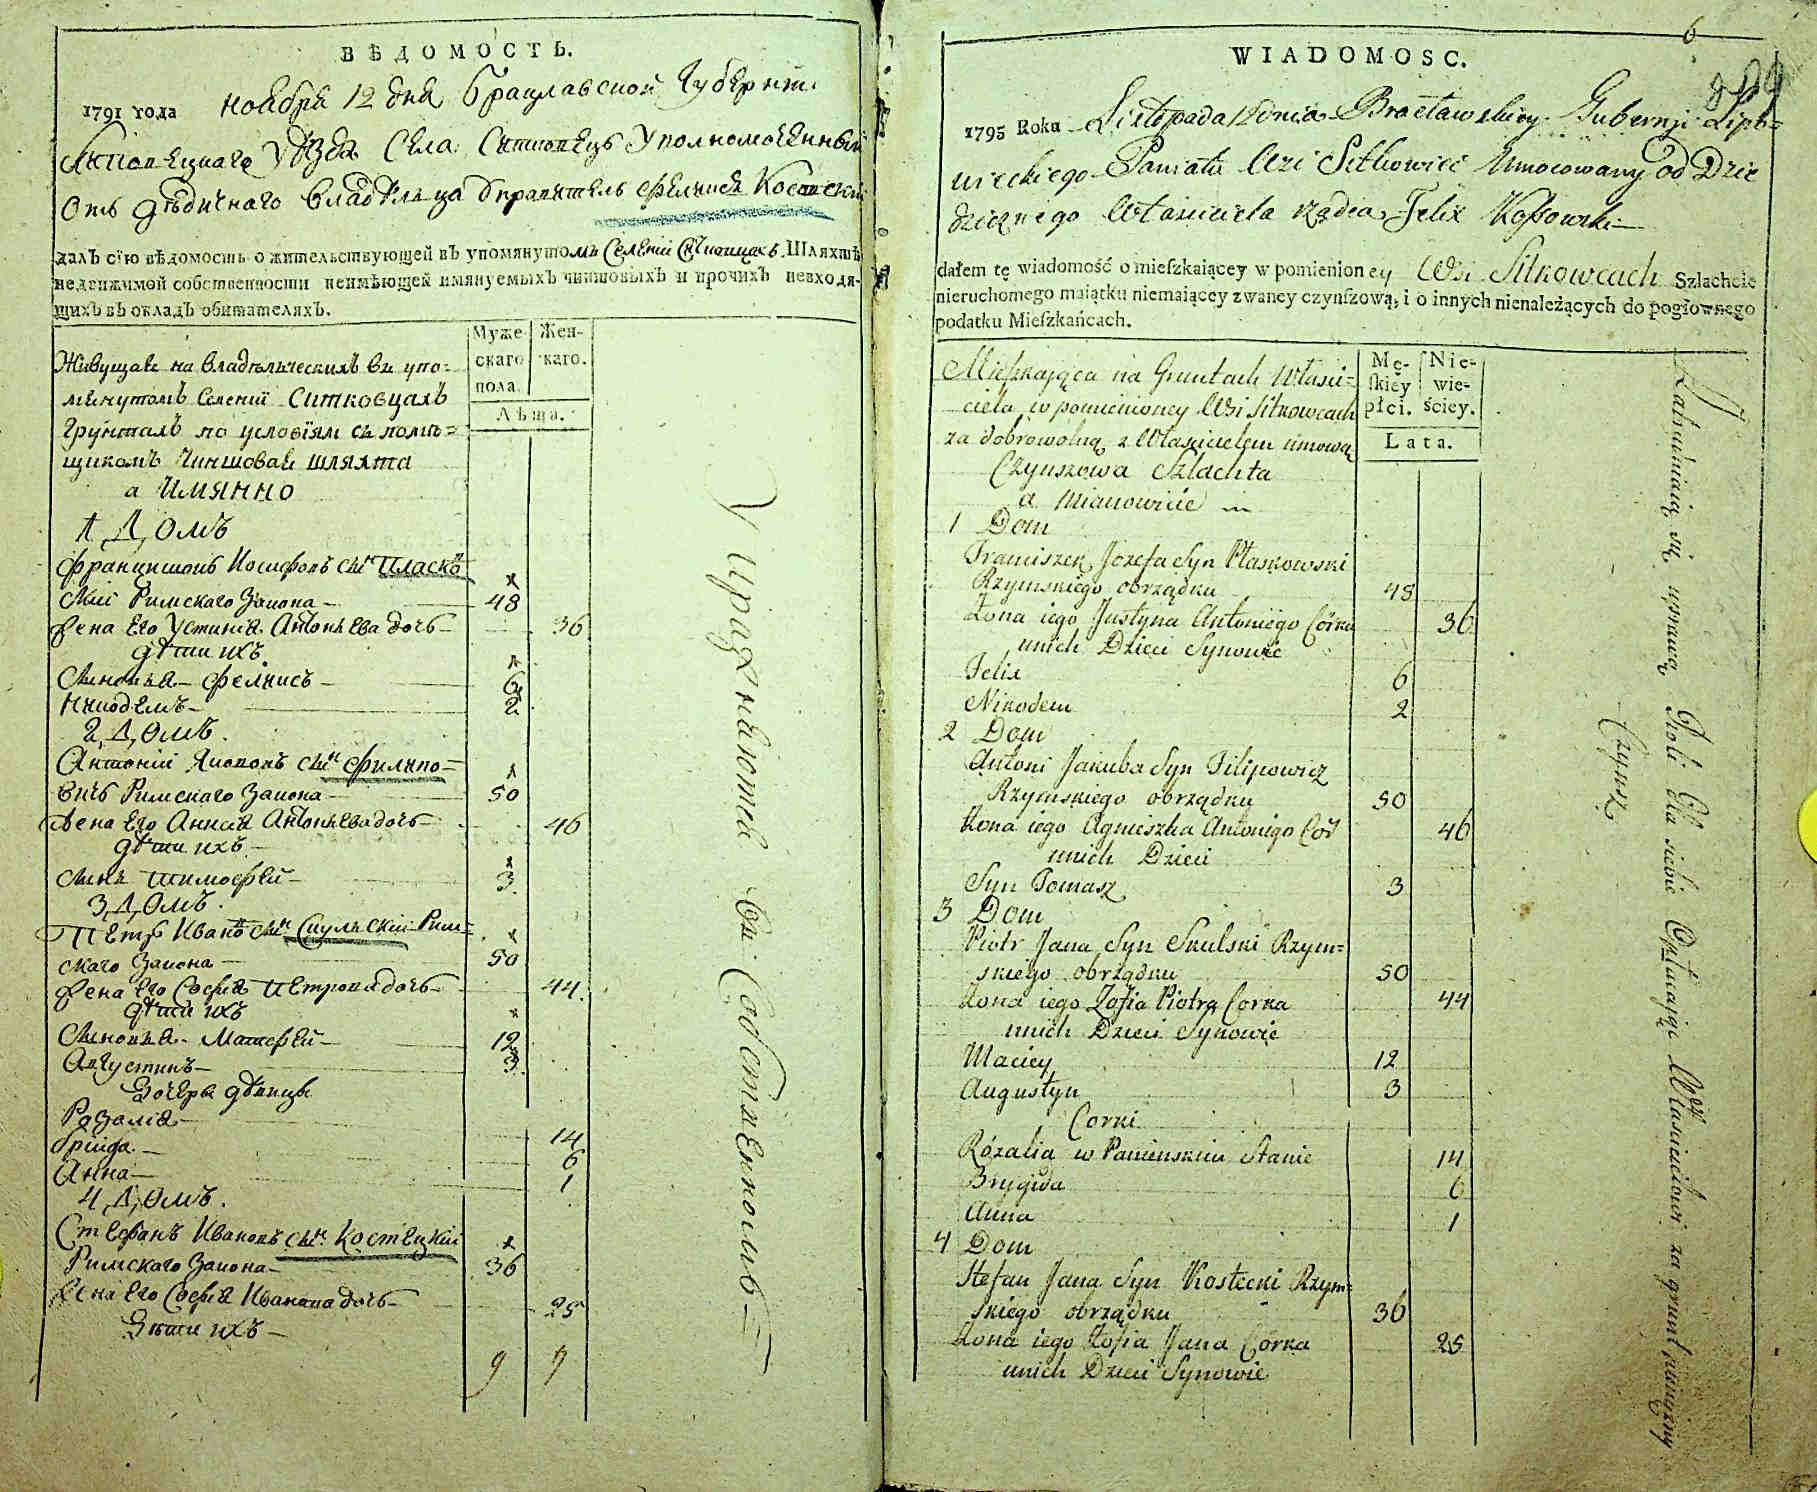 ВѢДОМОСТЬ.
1791 года ноября 12 дня Брацлавской Губерніи
Липовецкаго Уѣзда Села Ситковецъ Уполномоченный
Отъ дѣдичнаго владѣльца Управитель Феликсъ Косовскій
далъ сїю вѣдомость о жительствующей въ упомянутомъ Селеніи Ситковцахъ Шляхтѣ
недвижимой собственности неимѣющей имянуемыхъ чиншовыхъ и прочихъ невходя-
щихъ въ окладъ обитателяхъ.
Муже-
скаго
пола.
Жен-
скаго.
Лѣта.
Живущая на владѣльческихъ въ упо=
мянутомъ Селеніи Ситковцахъ
грунтахъ по условїямъ съ помѣ=
щикомъ Чиншовая шляхта
а Имянно
1 Домъ
Францишокъ Иосифовъ сынъ Пласко
скій Римскаго Закона 48
Жена Его Устинія Антоньева дочь 36
Дѣти ихъ
Сыновья Феликсъ 6
Никодемъ 2
2 Домъ
Антоній Якововъ сынъ Филипо=
вичъ Римскаго Закона 50
Жена Его Анися Антоньева дочь 46
Дѣти ихъ
Сынъ Тимофей 3
3 Домъ
Петръ Ивановъ сынъ Скульскій Рим=
скаго Закона 50
Жена Его Софія Петрова дочь 44
Дѣти ихъ
Сыновья Матфей 12
Августинъ 3
Дочери Дѣвицы
Розалія 14
Бригида 6
Анна 1
4 Домъ
Стефанъ Ивановъ сынъ Костецкій
Римскаго Закона 36
Жена Его Софія Иванова дочь 25
Дѣти ихъ
9 7
Упражняются въ Собственномъ
6
WIADOMOSC.
1795 Roku Listopada 12 dnia Bracławskiey Gubernji Lipo=
wieckiego Powiatu Wsi Sitkowiec Umocowany od Dzie
dzicznego Własciciela rządca Felix Kossowski
dałem tę wiadomość o mieſzkaiącey w pomienioney Wsi Sitkowcach Szlachcie
nieruchomego maiątku niemaiącey zwaney czynſzową, i o innych nienależących do pogłownego
podatku Mieſzkańcach.
Mę-
ſkiey
płci.
Nie-
wie-
ściey.
Lata.
Mieszkająca na Gruntach Własci=
ciela w pomienioney Wsi Sitkowcach
za dobrowolną z Włascicielem umową
Czynszowa Szlachta
a mianowicie
1 Dom
Franciszek Jozefa Syn Płaskowski
Rzymskiego obrządku 48
Żona iego Justyna Antoniego Córka 36
unich Dzieci Synowie
Felix 6
Nikodem 2
2 Dom
Antoni Jakuba Syn Filipowicz
Rzymskiego obrządku 50
Żona iego Agnieszka Antonigo Cor 46
unich Dzieci
Syn Tomasz 3
3 Dom
Piotr Jana Syn Skulski Rzym=
skiego obrządku 50
Żona iego Zofia Piotra Corka 44
unich Dzieci Synowie
Maciey 12
Augustyn 3
Corki
Rózalia w Panienskim Stanie 14
Brygida 6
Anna 1
4 Dom
Stefan Jana Syn Kostecki Rzym=
skiego obrządku 36
Żona iego Zofia Jana Corka 25
unich Dzieci Synowie
Zatrudniaią się uprawą Roli dla siebie Opłacając Włascicielowi za grunt pieniężny
Czynsz